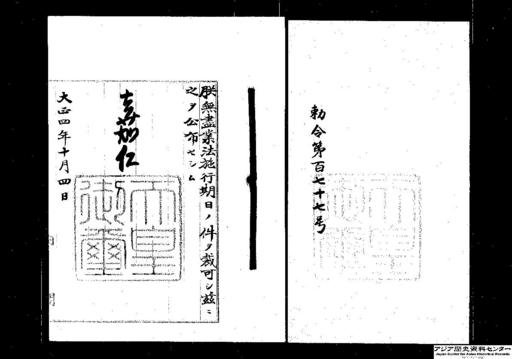 勅令第百七十七号
朕無盡業法施行期日ノ件ヲ裁可シ茲ニ
之ヲ公布セシム
嘉仁
天皇御璽
大正四年十月四日
アジア歴史資料センター
Japan Center for Asian Historical Records